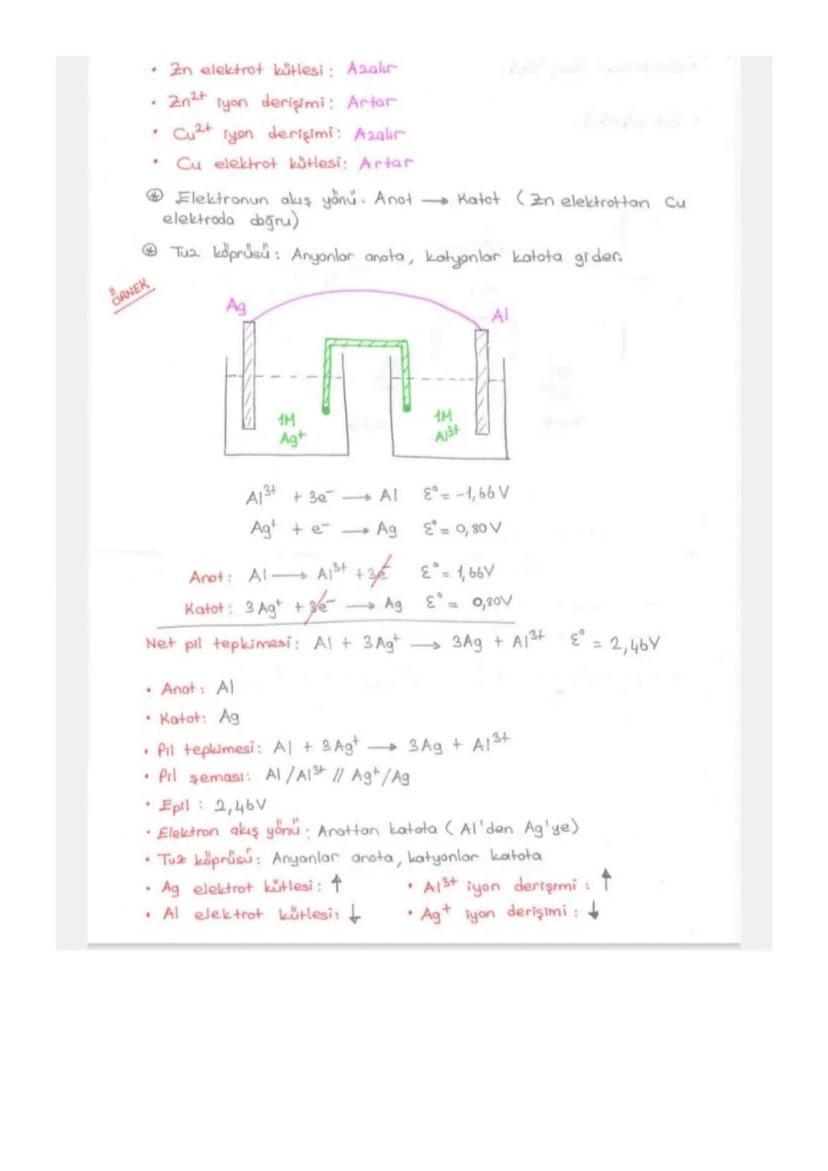 • Zn elektrot kütlesi : Azalır
• Zn²⁺ iyon derişimi : Artar
• Cu²⁺ iyon derişimi : Azalır
• Cu elektrot kütlesi : Artar
⊛ Elektronun akış yönü : Anot → Katot ( Zn elektrottan Cu
elektroda doğru)
⊛ Tuz köprüsü : Anyonlar anota, katyonlar katota gider.
ÖRNEK
Ag
Al
1M
Ag⁺
1M
Al³⁺
Al³⁺ + 3e⁻ → Al ε° = -1,66 V
Ag⁺ + e⁻ → Ag ε° = 0,80 V
Anot : Al → Al³⁺ + 3e⁻ ε° = 1,66V
Katot : 3 Ag⁺ + 3e⁻ → Ag ε° = 0,80V
Net pil tepkimesi : Al + 3Ag⁺ → 3Ag + Al³⁺ ε° = 2,46V
• Anot : Al
• Katot : Ag
• Pil tepkimesi : Al + 3Ag⁺ → 3Ag + Al³⁺
• Pil şeması : Al / Al³⁺ // Ag⁺ / Ag
• Epil : 2,46V
• Elektron akış yönü : Anottan katota ( Al'den Ag'ye)
• Tuz köprüsü : Anyonlar anota, katyonlar katota
• Ag elektrot kütlesi : ↑ • Al³⁺ iyon derişimi : ↑
• Al elektrot kütlesi : ↓ • Ag⁺ iyon derişimi : ↓